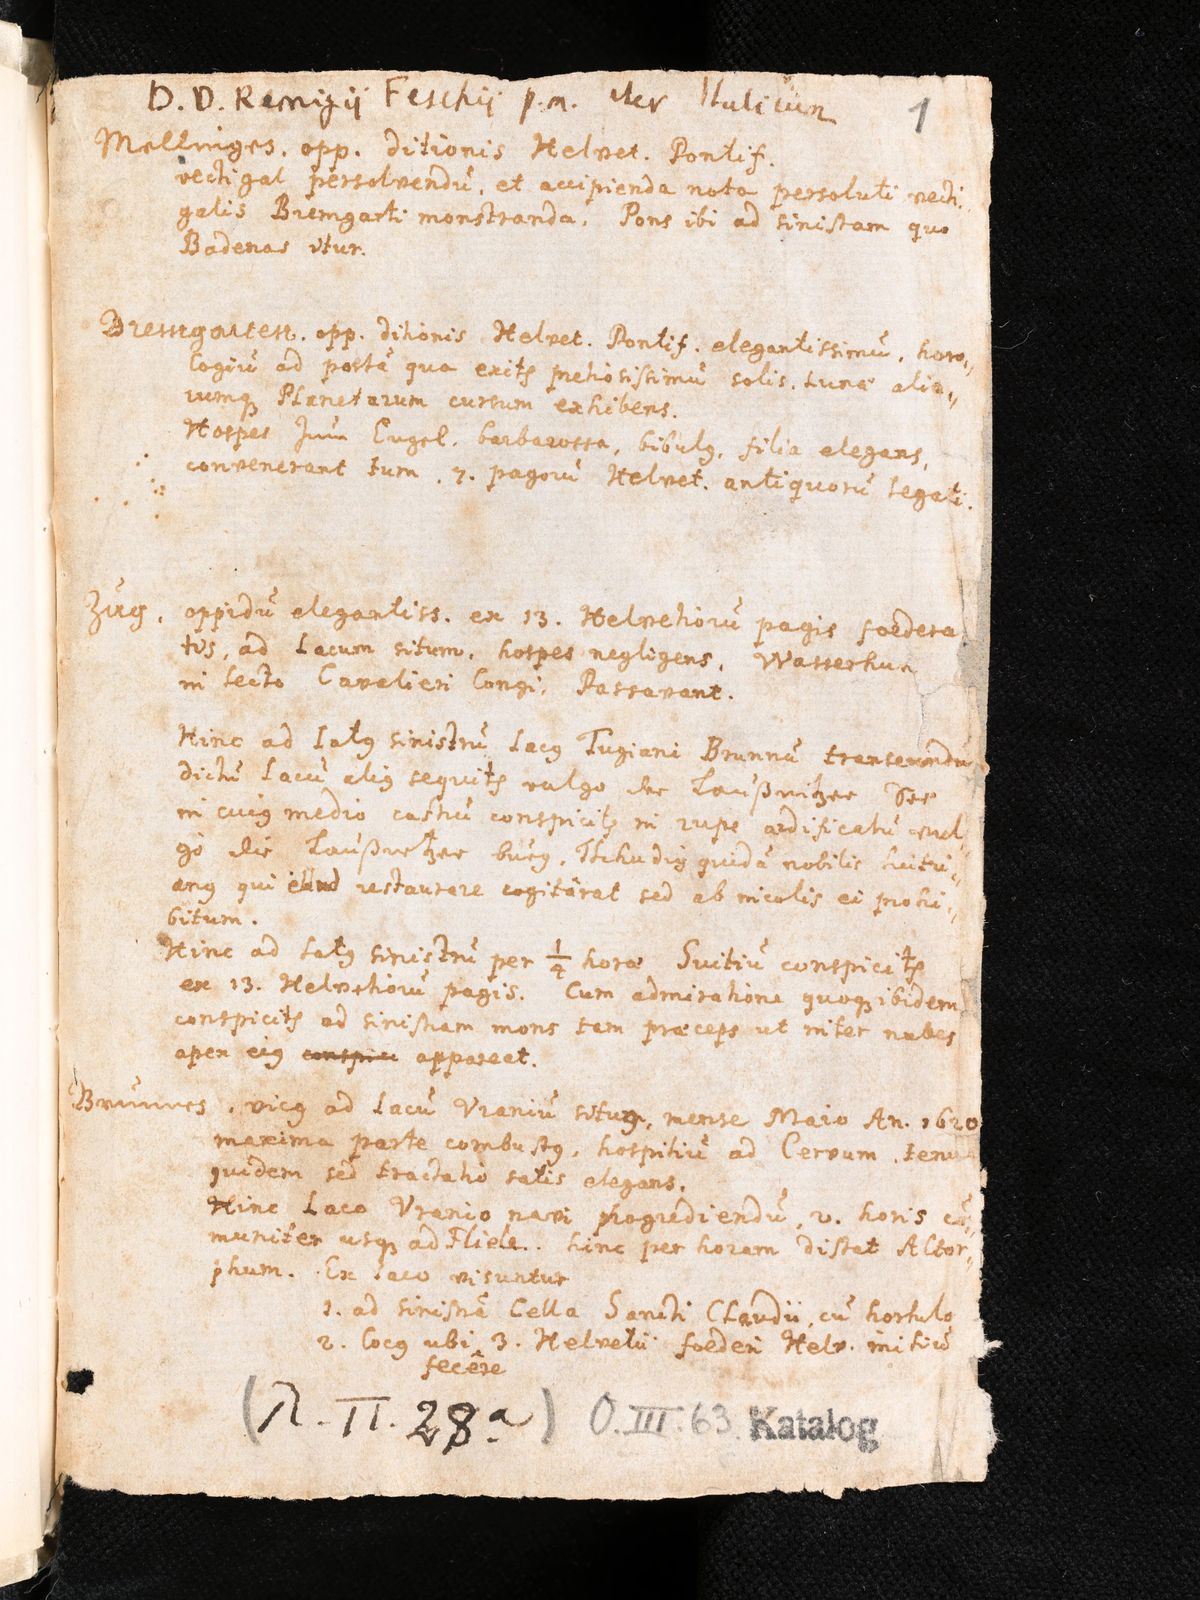 D. D. Remigij Feschij p.m. Iter Italicum
1
Mellinges. opp. ditionis Helvet. Pontif.
vectigal persolvendũ, et accipienda nota persoluti vecti„
galis Bremgarti monstranda. Pons ibi ad sinistram quo
Badenas itur.
Bremgarten. opp. ditionis Helvet. Pontif. elegantissimũ, horo„
logiũ ad portã qua exitꝭ pretiosissimũ solis, Lunæ alio„
rumqꝫ Planetarum cursum exhibens.
Hospes Jun Engel. barbarossa, bibulꝯ, filia elegans,
convenerant tum . 7. pagorũ Helvet. antiquorũ Legati.
Zug. oppidũ elegantiss. ex 13. Helvetiorũ pagis foedera
tis, ad Lacum situm, hospes negligens, Wasserhun
in tecto Cavalieri Longi, Passavant.
Hinc ad Latꝯ sinistrũ Lacꝯ Tugiani Brunnũ transeundũ
dictũ Lacũ aliꝯ sequitꝭ vulgo der Laußwitzer See
in cuiꝯ medio castrũ conspicitꝭ in rupe ædificatũ vul„
gò die Laußwetzer burg. Tschudiꝯ quidã nobilis Suitri„
anꝯ qui illud restaurare cogitârat sed ab incolis ei prohi„
bitum.
Hinc ad Latꝯ sinistrũ per 1/4 horæ Suitiũ conspicitꝭ
ex 13. Helvetiorũ pagis. Cum admiratione quoqꝫ ibidem
conspicitꝭ ad sinistram mons tam præceps ut inter nubes
apex eiꝯ conspici appareat.
Brunnes, vicꝯ ad Lacũ Vraniũ situs, mense Maio An. 1620
maxima parte combustꝯ, hospitiũ ad Cervum, tenue
quidem sed tractatio satis elegans.
Hinc Laco Vranio navi progrediendũ, 2. horis cõ„
muniter usqꝫ ad Fliele.. hinc per horam distat Altor„
phum. Ex laco visuntur
1. ad sinistrã Cella Sancti Claudii, cũ hortulo
2. locꝯ ubi 3. Helvetii foederi Helv. initiũ
fecêre
(λ. II. 28.a) O. III. 63. Katalog